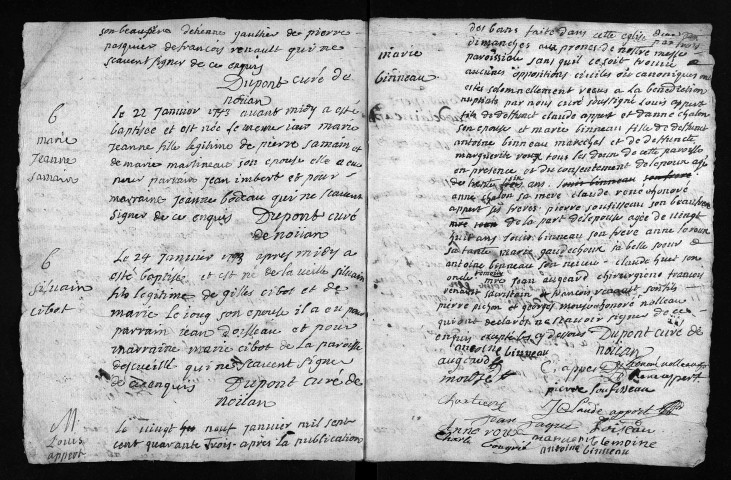 son beaupère detienne gaultier de pierre
pasquier de francois renault qui ne
scauent signer de ce enquis
Dupont curé de
noilan
6
marie
jeanne
samain
le 22 janvier 1743 auant midy a esté
baptisée et est née le meme iour marie
jeanne fille legitime de pierre samain et
de marie martineau son epouse elle a eu
pour parrain jean imbert et pour
marraine jeanne bodeau qui ne scauent
signer de ce enquis Dupont curé
de noilan
6
siluain
cibot
le 24 janvier 1743 apres midy a
esté baptisé et est né de la ueille siluain
fils legitime de gilles cibot et de
marie le loug son epouse il a eu pour
parrain jean doisseau et pour
marraine marie cibot de la paroisse
descueillé qui ne scauent signer
de ce enquis Dupont curé de
noilan
M.
Louis
appert
le vingt neuf janvier mil sept
cent quarante trois apres la publication
marie
binneau
des bans faite dans cette eglise
dimanches aux prones de nostre messe
paroissiale sans quil ce soit trouué
aucunes oppositions ciuiles ou canoniques
estés solemnellement recus a la benediction
nuptiale par nous curé soussigné Louis appert
fils de deffunt claude appert et danne chalon
son epouse et marie binneau fille de deffunt
antoine binneau marechal et de deffuncte
marguerite roux tous les deux de cette paroisse
en presence et du consentement de lepoux agé
de trente ans
anne chalon sa mere claude rené honoré
appert ses freres pierre soufisseau son beaufrere
de la part de lepouse agée de uingt
huit ans louis binneau son frere anne le roux
sa tante marie gaudechoux la belle soeur
antoine binneau son neueu claude huet son
oncle jean augeard chirurgiene francois
renault sacristain et francois renault son fils
pierre pichon et georges honoré nolleau
qui ont declarés ne scauoir signer de ce
enquis excepté les cy dessous Dupont curé de
noilan
antoine binneau
augeard
C. appert
Rene appert
pierre soufisseau
Claude appert
Anne roux
manuel lemoine
antoine binneau